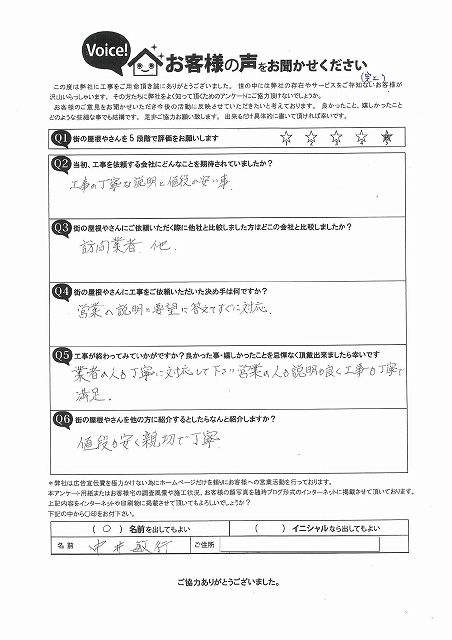 Voice!
お客様の声をお聞かせください
この度は弊社に工事をご用命頂き誠にありがとうございました。世の中には弊社の存在やサービスをご存知ないお客様が
沢山いらっしゃいます。その方たちに弊社をよく知って頂くためのアンケートにご協力頂けないでしょうか。
お客様のご意見をお聞かせいただき今後の活動に反映させていただきたいと考えております。良かったこと、嬉しかったこと
どのような些細な事でも結構です。是非ご協力お願い致します。出来るだけ具体的に書いて頂ければ幸いです。
Q1 街の屋根やさんを5段階で評価をお願いします ☆ ☆ ☆ ☆ ★
Q2 当初、工事を依頼する会社にどんなことを期待されていましたか?
工事の丁寧な説明と値段の安い事.
Q3 街の屋根やさんにご依頼いただく際に他社と比較しました方はどこの会社と比較しましたか?
訪問業者 他.
Q4 街の屋根やさんに工事をご依頼いただいた決め手は何ですか?
営業の説明と要望に答えてすぐに対応.
Q5 工事が終わってみていかがですか?良かった事・嬉しかったことを忌憚なく頂戴出来ましたら幸いです
業者の人も丁寧に対応して下さり営業の人も説明が良く工事も丁寧で
満足.
Q6 街の屋根やさんを他の方に紹介するとしたらなんと紹介しますか?
値段が安く親切で丁寧
*弊社は広告宣伝費を極力かけない為にホームページだけを頼りにお客様への営業活動を行っております。
本アンケート用紙またはお客様宅の調査風景や施工状況、お客様の顔写真を随時ブログ形式のインターネットに掲載させて頂いております。
上記内容をインターネットや印刷物に掲載させて頂いてもよろしいでしょうか?
下記の中から〇印をお付下さい。
( 〇 ) 名前を出してもよい ( ) イニシャルなら出してもよい
名前 中井敏行 ご住所
ご協力ありがとうございました。